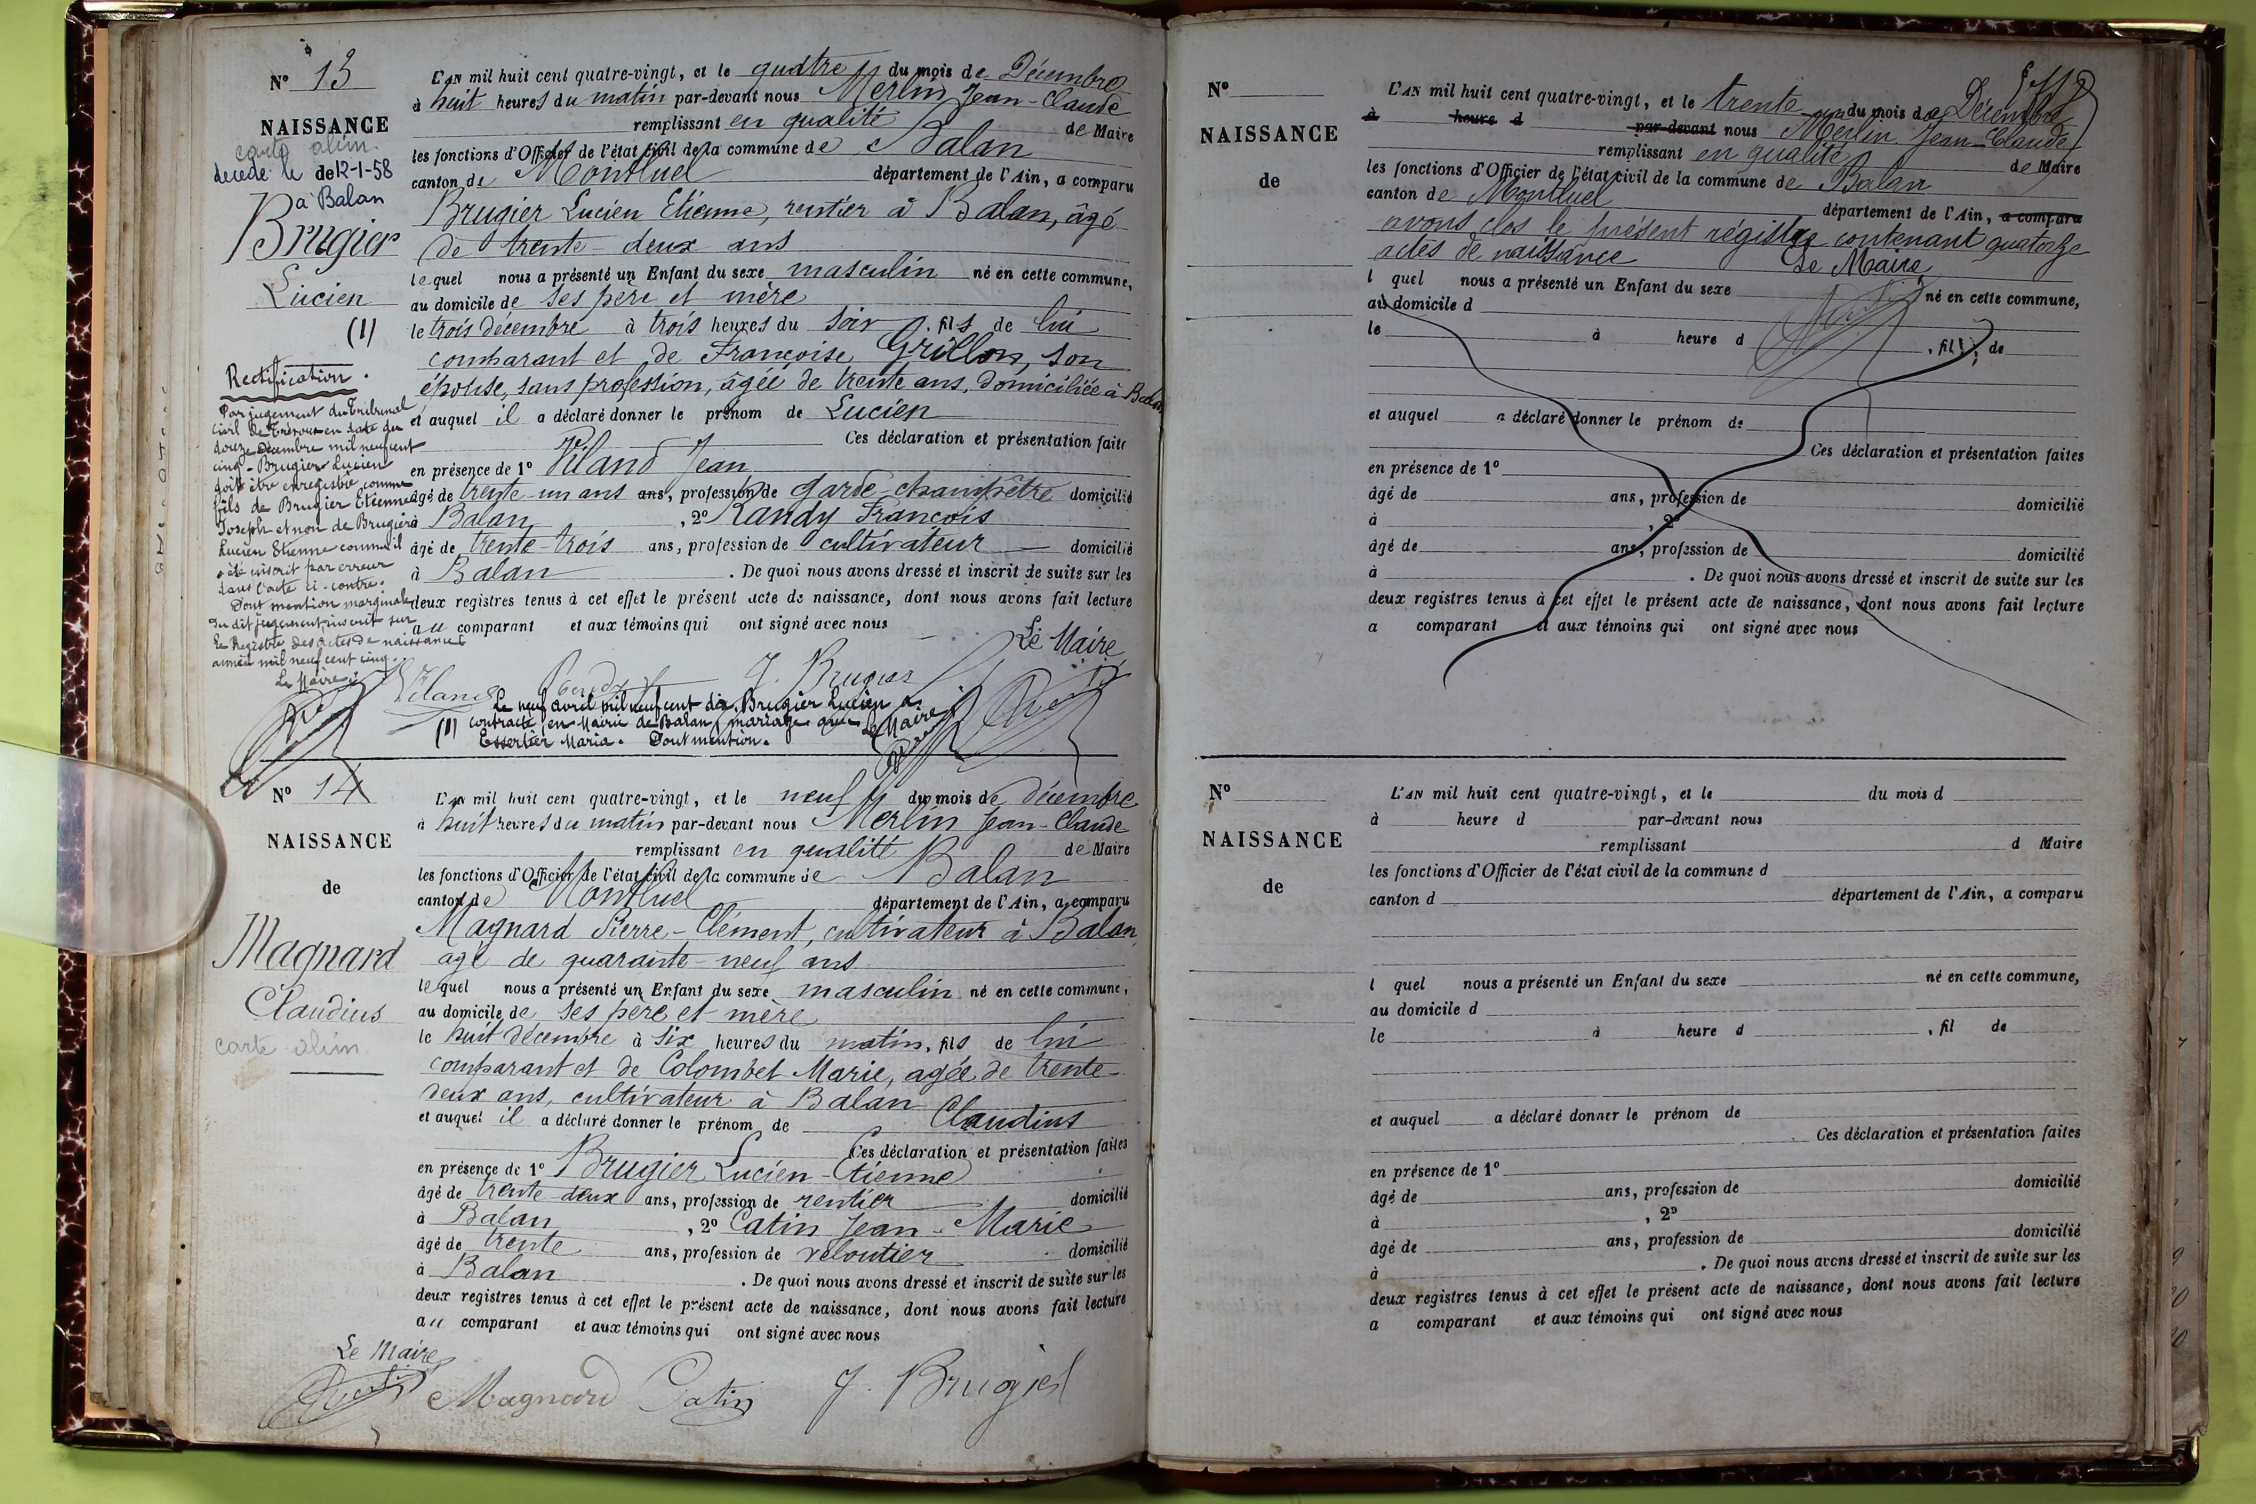 N° 13
NAISSANCE
carte alim.
décédé le de 12-1-58
à Balan
Brugier
Lucien
(1)
Rectification.
Par jugement du Tribunal
civil de Trévoux en date du
douze Décembre mil neuf cent
cinq - Brugier Lucien
doit être enregistré comme
fils de Brugier Etienne
Joseph et non de Brugier
Lucien Etienne comme il
a été inscrit par erreur
dans l'acte ci-contre.
Dont mention marginale
du dit jugement inscrit sur
le Registre des actes de naissance
année mil neuf cent cinq.
Le Maire
L'AN mil huit cent quatre-vingt, et le quatre du mois de Décembre
à huit heures du matin par-devant nous Merlin Jean-Claude
remplissant en qualité de Maire
les fonctions d'Officier de l'état civil de la commune de Balan
canton de Montluel département de l'Ain, a comparu
Brugier Lucien Etienne, rentier à Balan, âgé
de trente-deux ans
lequel nous a présenté un Enfant du sexe masculin né en cette commune,
au domicile de ses père et mère
le trois décembre à trois heures du soir, fils de lui
comparant et de Françoise Grillon, son
épouse, sans profession, âgée de trente ans, domiciliée à Balan
et auquel il a déclaré donner le prénom de Lucien
Ces déclaration et présentation faites
en présence de 1° Viland Jean
âgé de trente-un ans ans, profession de garde-champêtre domicilié
à Balan, 2° Randy François
âgé de trente-trois ans, profession de cultivateur domicilié
à Balan. De quoi nous avons dressé et inscrit de suite sur les
deux registres tenus à cet effet le présent acte de naissance, dont nous avons fait lecture
au comparant et aux témoins qui ont signé avec nous
Le Maire
Viland Randy J. Brugier
Le neuf avril mil neuf cent dix, Brugier Lucien a
(1) contracté en Mairie de Balan, mariage avec Le Maire
Essertier Maria. Dont mention.
N° 14
NAISSANCE
de
Magnard
Claudius
carte alim
L'AN mil huit cent quatre-vingt, et le neuf du mois de décembre
à huit heures du matin par-devant nous Merlin Jean-Claude
remplissant en qualité de Maire
les fonctions d'Officier de l'état civil de la commune de Balan
canton de Montluel département de l'Ain, a comparu
Magnard Pierre-Clément, cultivateur à Balan,
agé de quarante-neuf ans
lequel nous a présenté un Enfant du sexe masculin né en cette commune,
au domicile de ses père et mère
le huit décembre à six heures du matin, fils de lui
comparant et de Colombet Marie, agée de trente-
deux ans, cultivateur à Balan
et auquel il a déclaré donner le prénom de Claudius
Ces déclaration et présentation faites
en présence de 1° Brugier Lucien-Etienne
âgé de trente-deux ans, profession de rentier domicilié
à Balan, 2° Catin Jean-Marie
âgé de trente ans, profession de veloutier domicilié
à Balan. De quoi nous avons dressé et inscrit de suite sur les
deux registres tenus à cet effet le présent acte de naissance, dont nous avons fait lecture
au comparant et aux témoins qui ont signé avec nous
Le Maire
Magnard Catin J. Brugier
N°
NAISSANCE
de
L'AN mil huit cent quatre-vingt, et le trente-un du mois de Décembre
à heure d par-devant nous Merlin Jean-Claude
remplissant en qualité de Maire
les fonctions d'Officier de l'état civil de la commune de Balan
canton de Montluel département de l'Ain, a comparu
avons clos le présent régistre contenant quatorze
actes de naissance Le Maire
l quel nous a présenté un Enfant du sexe né en cette commune,
au domicile d
le à heure d, fil de
et auquel a déclaré donner le prénom de
Ces déclaration et présentation faites
en présence de 1°
âgé de ans, profession de domicilié
à, 2°
âgé de ans, profession de domicilié
à. De quoi nous avons dressé et inscrit de suite sur les
deux registres tenus à cet effet le présent acte de naissance, dont nous avons fait lecture
a comparant et aux témoins qui ont signé avec nous
N°
NAISSANCE
de
L'AN mil huit cent quatre-vingt, et le du mois d
à heure d par-devant nous
remplissant d Maire
les fonctions d'Officier de l'état civil de la commune d
canton d département de l'Ain, a comparu
l quel nous a présenté un Enfant du sexe né en cette commune,
au domicile d
le à heure d, fil de
et auquel a déclaré donner le prénom de
Ces déclaration et présentation faites
en présence de 1°
âgé de ans, profession de domicilié
à, 2°
âgé de ans, profession de domicilié
à. De quoi nous avons dressé et inscrit de suite sur les
deux registres tenus à cet effet le présent acte de naissance, dont nous avons fait lecture
a comparant et aux témoins qui ont signé avec nous